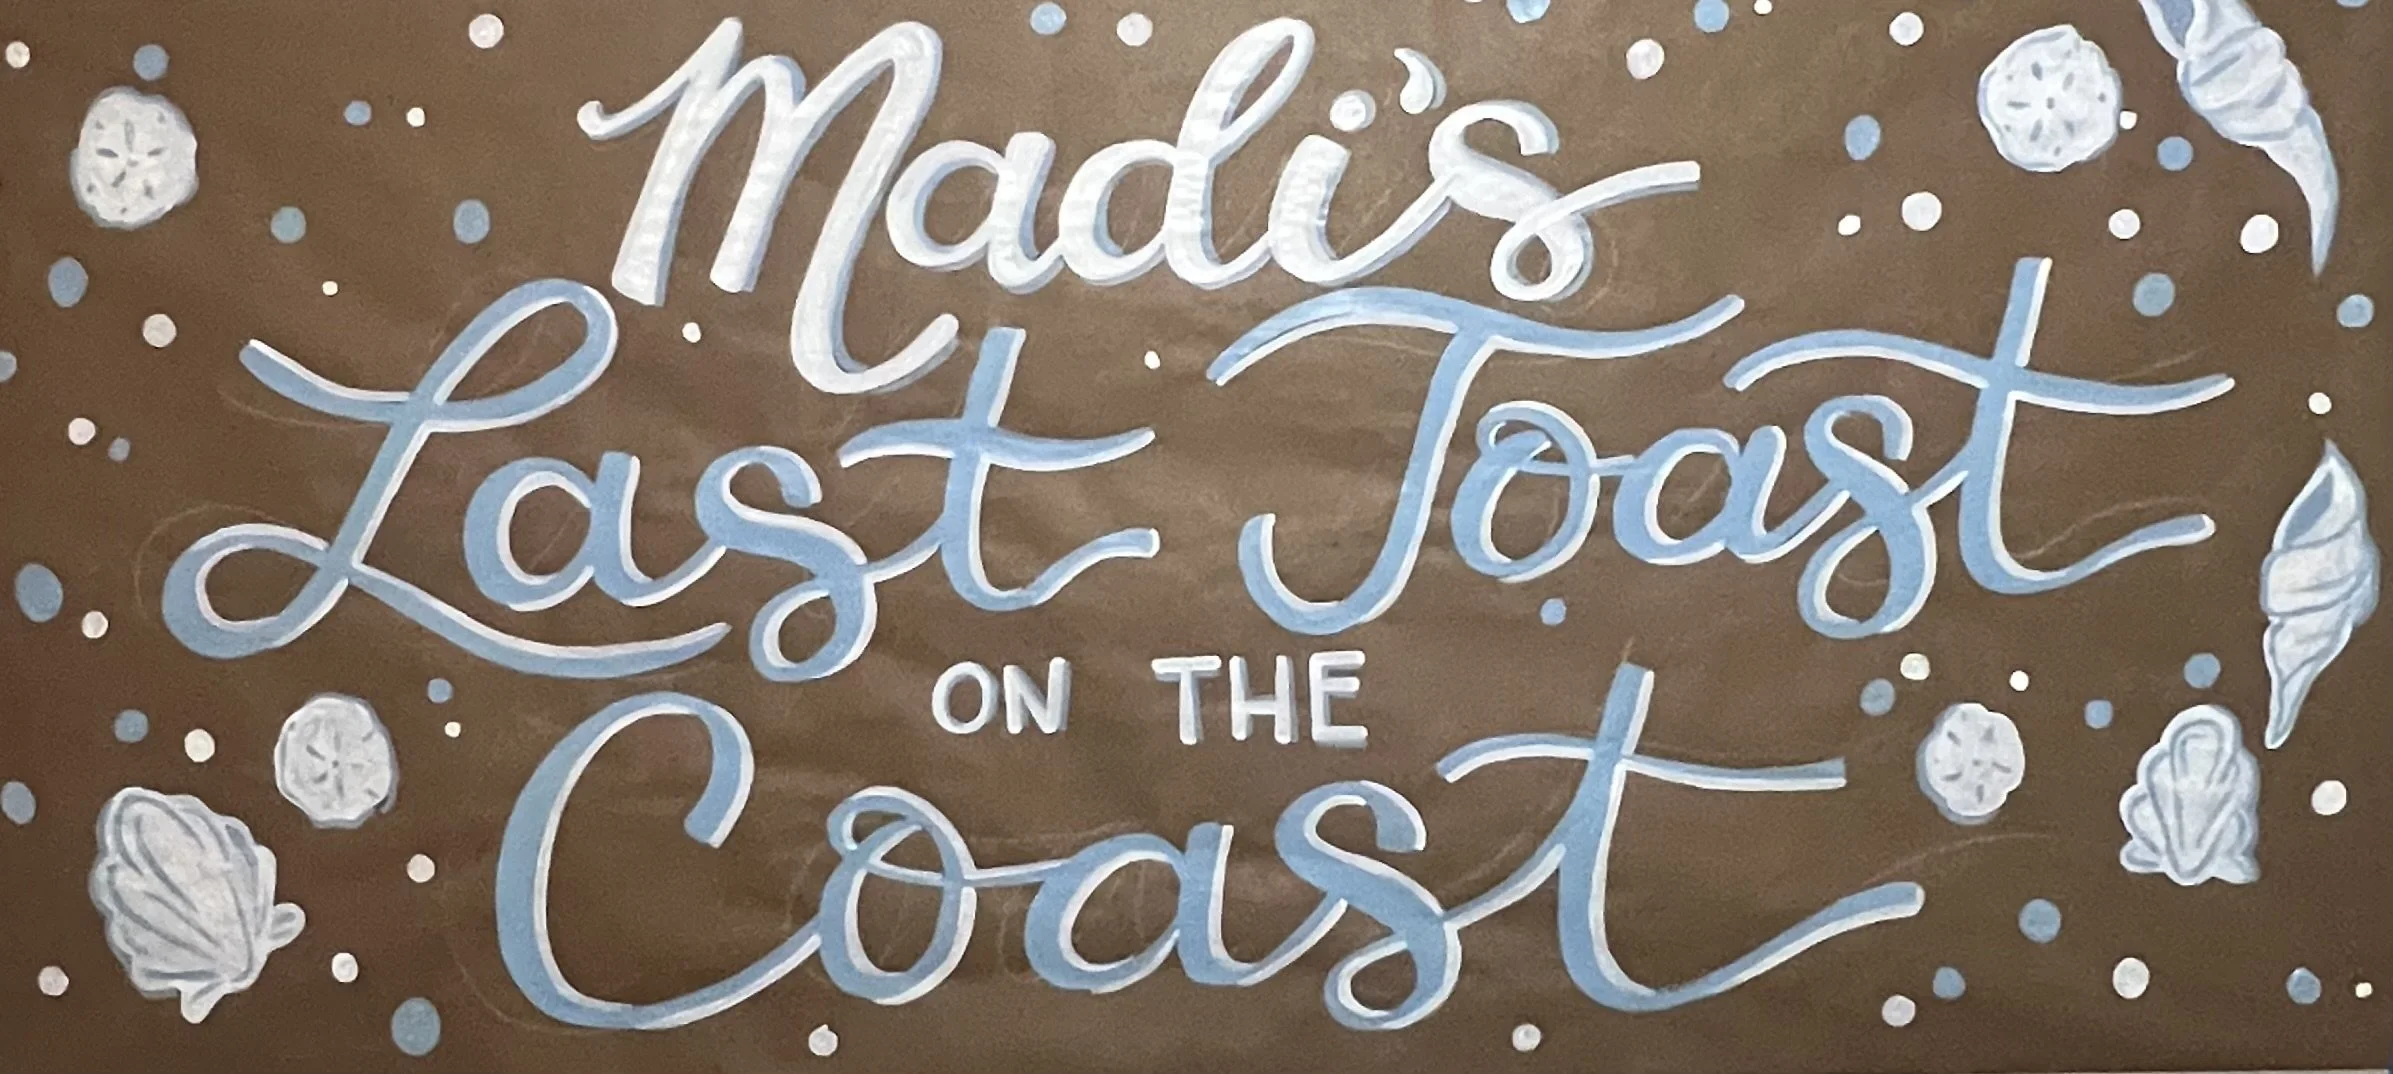 Madi's
Last Toast
ON THE
Coast